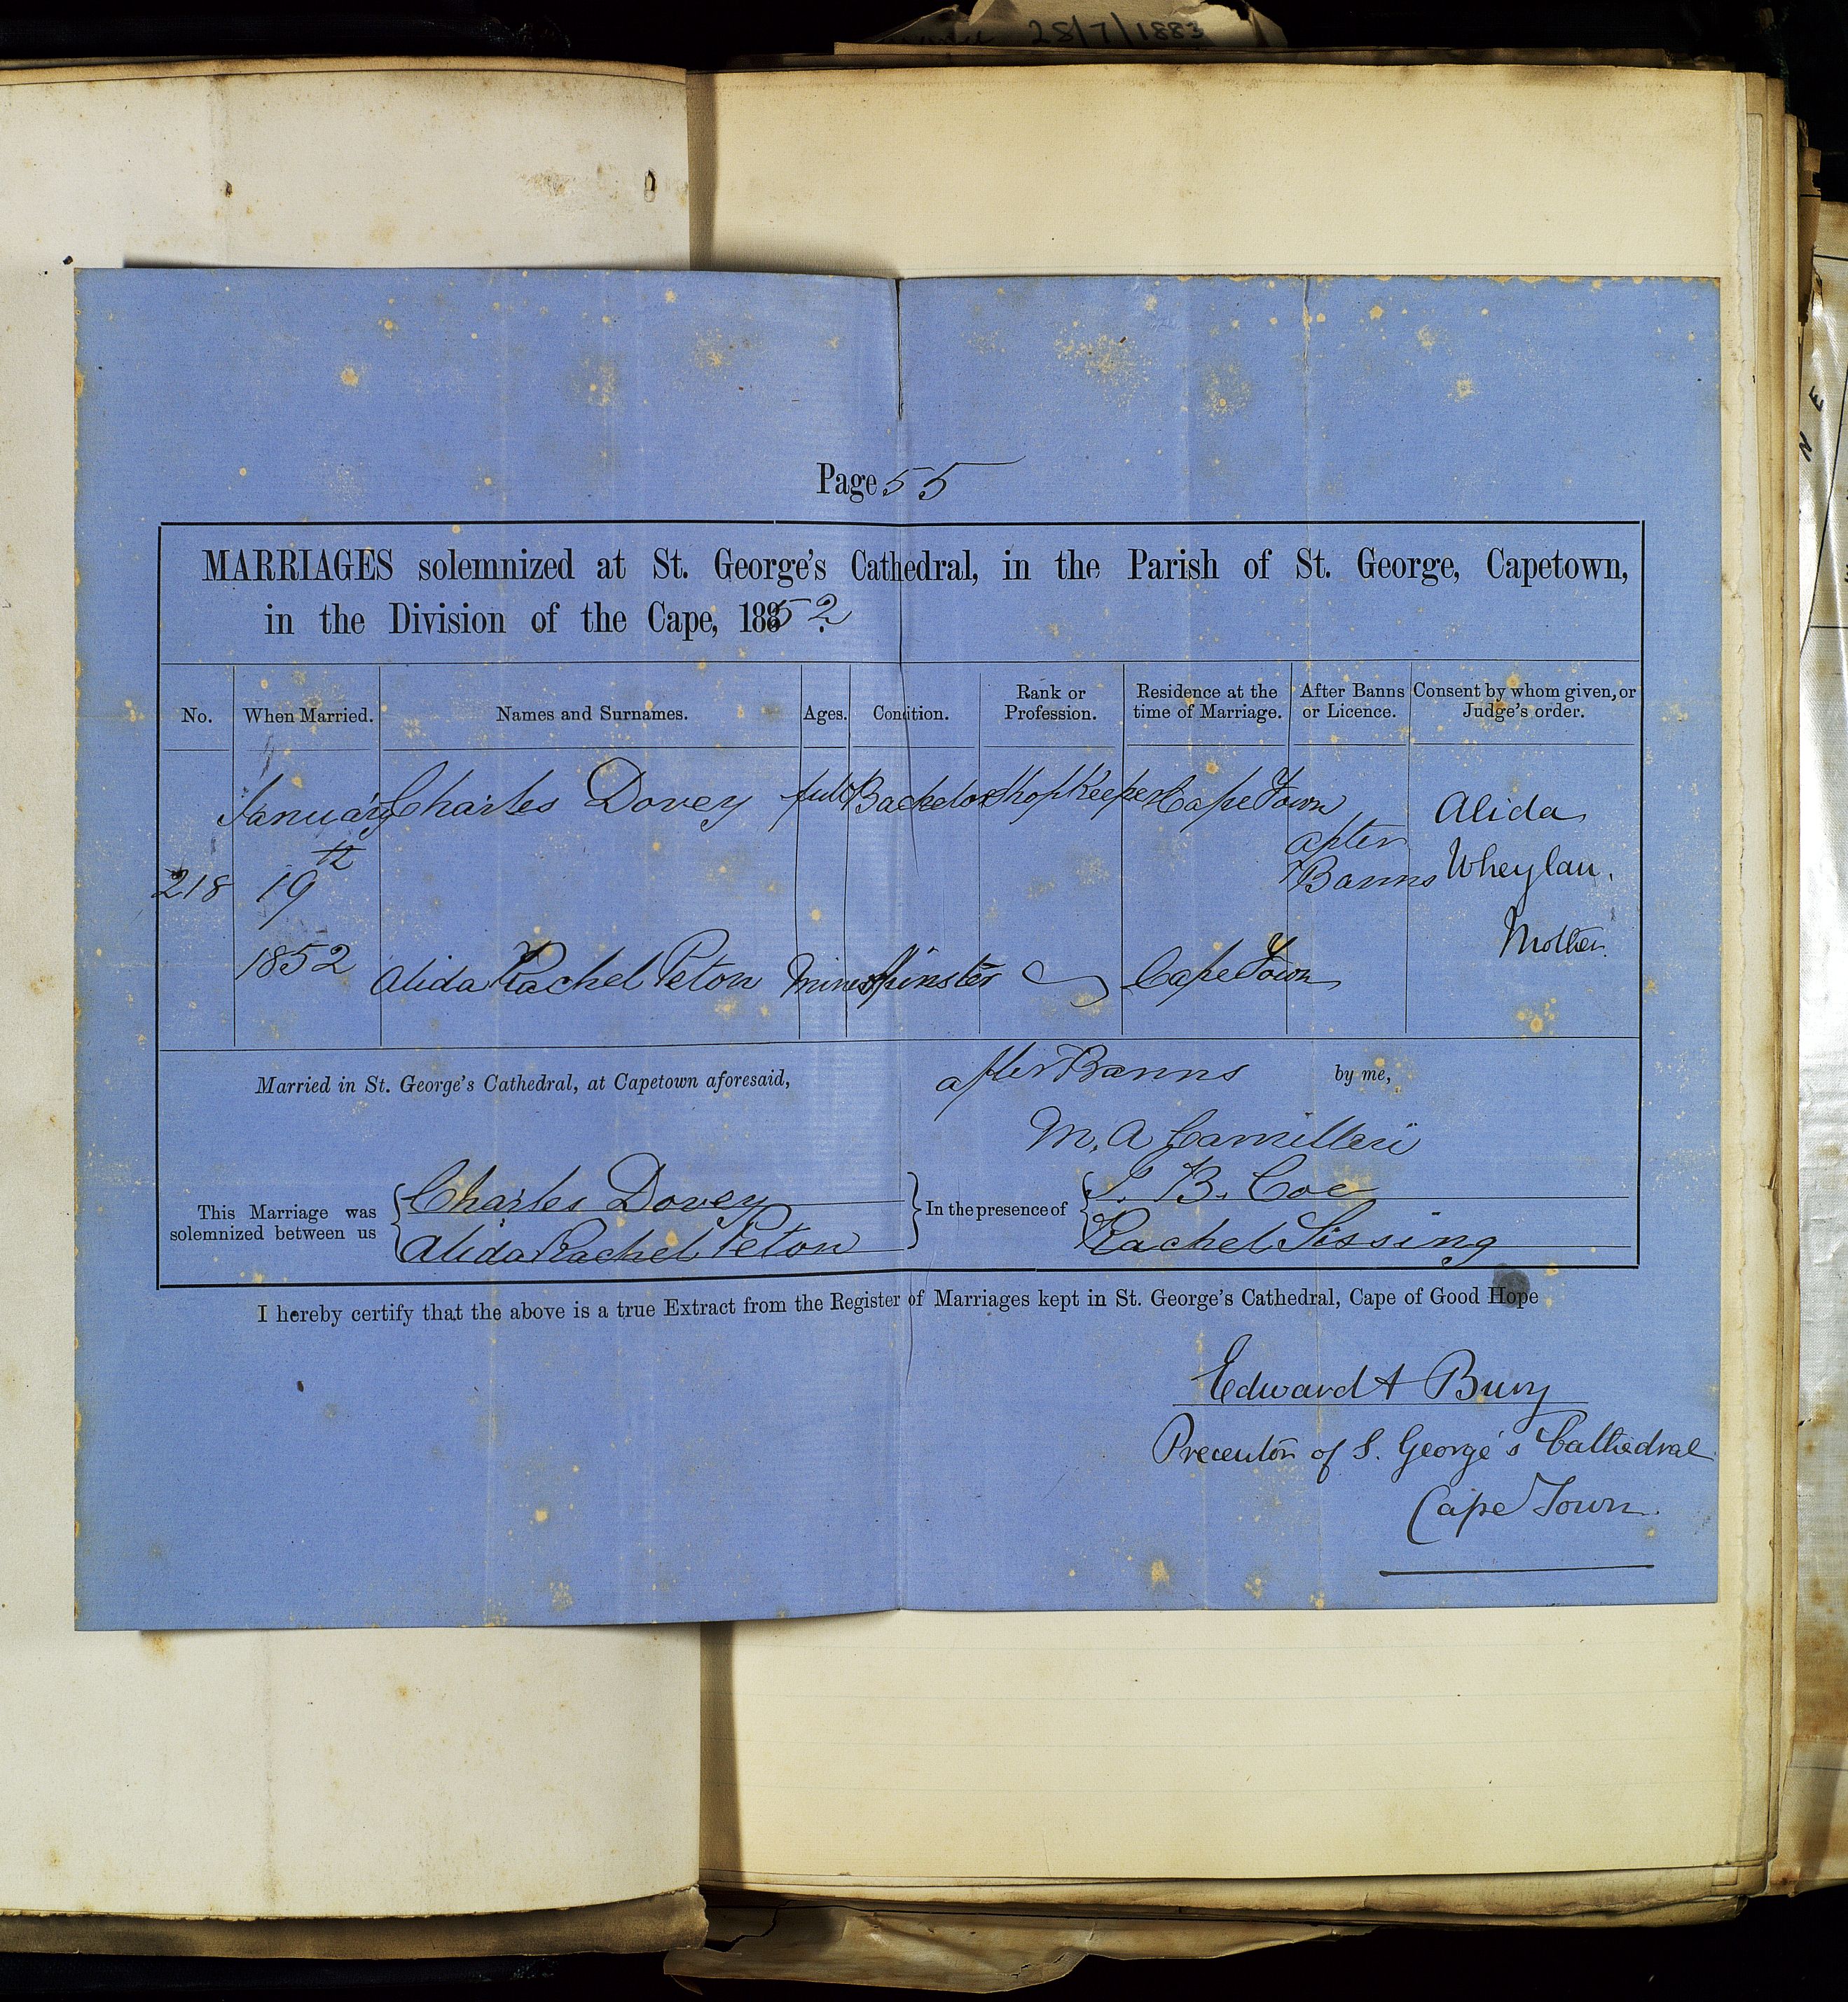 28/7/1883
Page 55
MARRIAGES solemnized at St. George's Cathedral, in the Parish of St. George, Capetown,
in the Division of the Cape, 1852.
No. When Married. Names and Surnames. Ages. Condition. Rank or Profession. Residence at the time of Marriage. After Banns or Licence. Consent by whom given, or Judge's order.
January Charles Dovey full Bachelor Shopkeeper Cape Town
218 19th after Banns Alida Wheylan. Mother.
1852 Alida Rachel Peton Minor Spinster Cape Town
Married in St. George's Cathedral, at Capetown aforesaid, after Banns by me,
M. A Camilleri
This Marriage was solemnized between us Charles Dovey In the presence of B. Coe
Alida Rachel Peton Rachel Sissing
I hereby certify that the above is a true Extract from the Register of Marriages kept in St. George's Cathedral, Cape of Good Hope
Edward A Bury
Precentor of S. George's Cathedral
Cape Town.